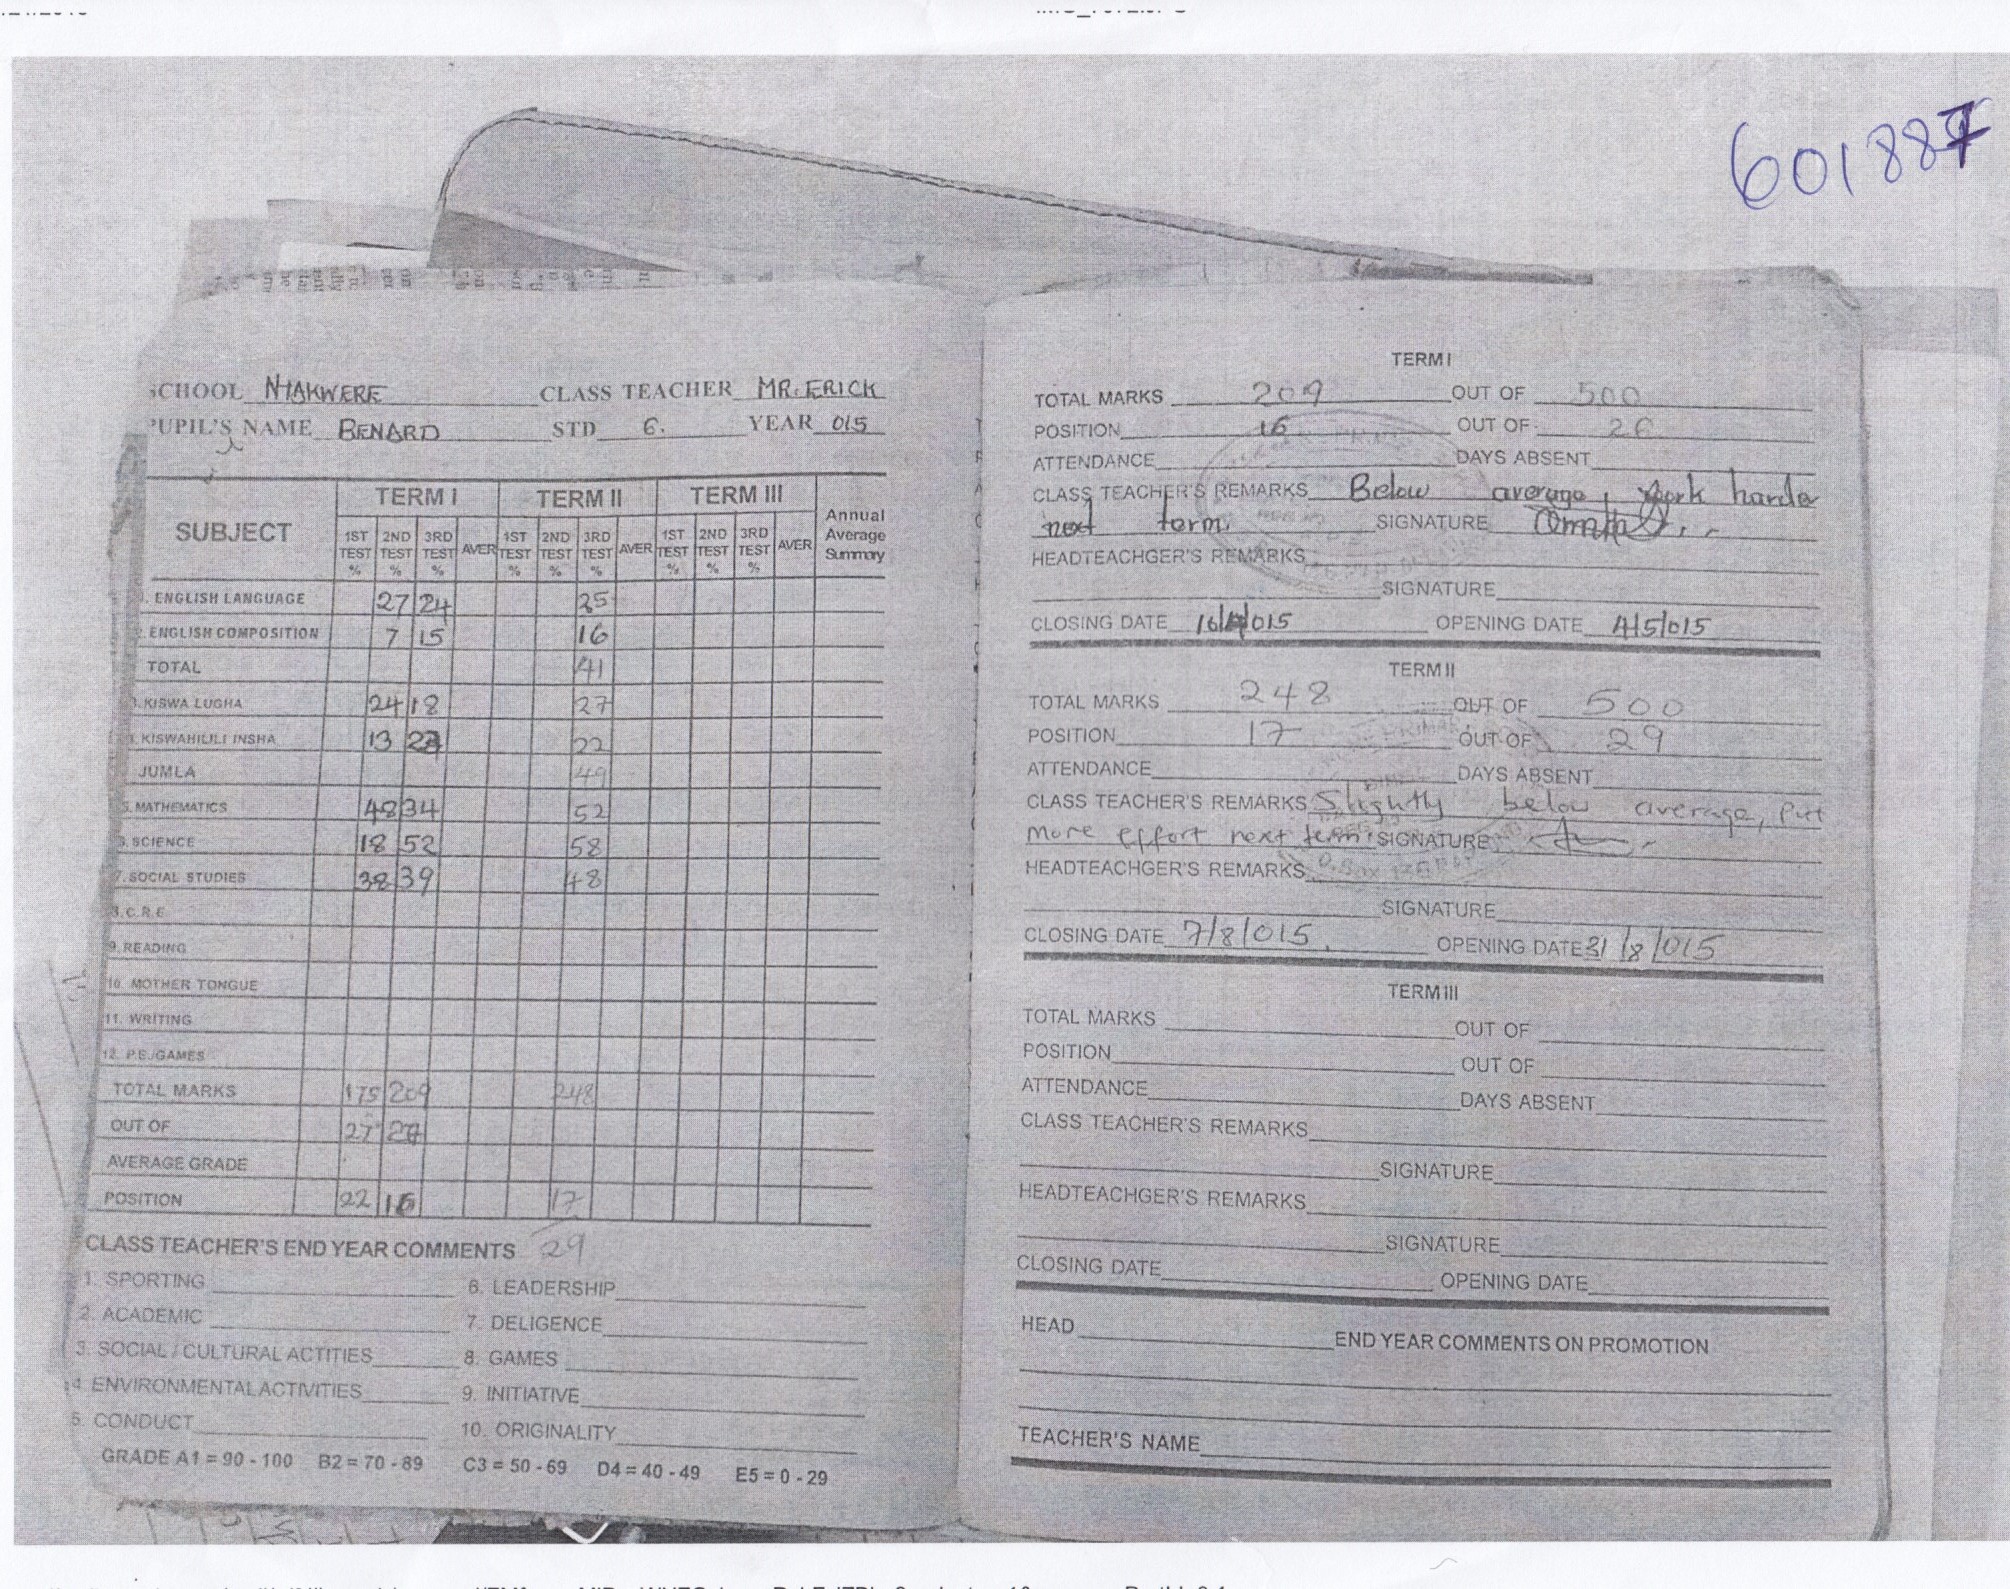 601887
SCHOOL NYAKWERE CLASS TEACHER MR. ERICK
PUPIL'S NAME BENARD STD 6. YEAR 015
SUBJECT TERM I TERM II TERM III Annual Average Summary
1ST TEST % 2ND TEST % 3RD TEST % AVER 1ST TEST % 2ND TEST % 3RD TEST % AVER 1ST TEST % 2ND TEST % 3RD TEST % AVER
1. ENGLISH LANGUAGE 27 24 25
2. ENGLISH COMPOSITION 7 15 16
TOTAL 41
3. KISWA LUGHA 24 18 27
4. KISWAHILILI INSHA 13 27 22
JUMLA 49
5. MATHEMATICS 48 34 52
6. SCIENCE 18 52 58
7. SOCIAL STUDIES 38 39 48
8. C.R.E
9. READING
10. MOTHER TONGUE
11. WRITING
12. P.E./GAMES
TOTAL MARKS 175 209 248
OUT OF 27 27
AVERAGE GRADE
POSITION 22 16 17
CLASS TEACHER'S END YEAR COMMENTS 29
1. SPORTING 6. LEADERSHIP
2. ACADEMIC 7. DELIGENCE
3. SOCIAL / CULTURAL ACTITIES 8. GAMES
4. ENVIRONMENTAL ACTIVITIES 9. INITIATIVE
5. CONDUCT 10. ORIGINALITY
GRADE A1 = 90 - 100 B2 = 70 - 89 C3 = 50 - 69 D4 = 40 - 49 E5 = 0 - 29
TERM I
TOTAL MARKS 209 OUT OF 500
POSITION 16 OUT OF
ATTENDANCE DAYS ABSENT
CLASS TEACHER'S REMARKS Below average, work harder
next term. SIGNATURE
HEADTEACHGER'S REMARKS
SIGNATURE
CLOSING DATE 10/4/015 OPENING DATE 4/5/015
TERM II
TOTAL MARKS 248 OUT OF 500
POSITION 17 OUT OF 29
ATTENDANCE DAYS ABSENT
CLASS TEACHER'S REMARKS Slightly below average, put
more effort next term. SIGNATURE
HEADTEACHGER'S REMARKS
SIGNATURE
CLOSING DATE 7/8/015. OPENING DATE 31/8/015
TERM III
TOTAL MARKS OUT OF
POSITION OUT OF
ATTENDANCE DAYS ABSENT
CLASS TEACHER'S REMARKS
SIGNATURE
HEADTEACHGER'S REMARKS
SIGNATURE
CLOSING DATE OPENING DATE
HEAD END YEAR COMMENTS ON PROMOTION
TEACHER'S NAME